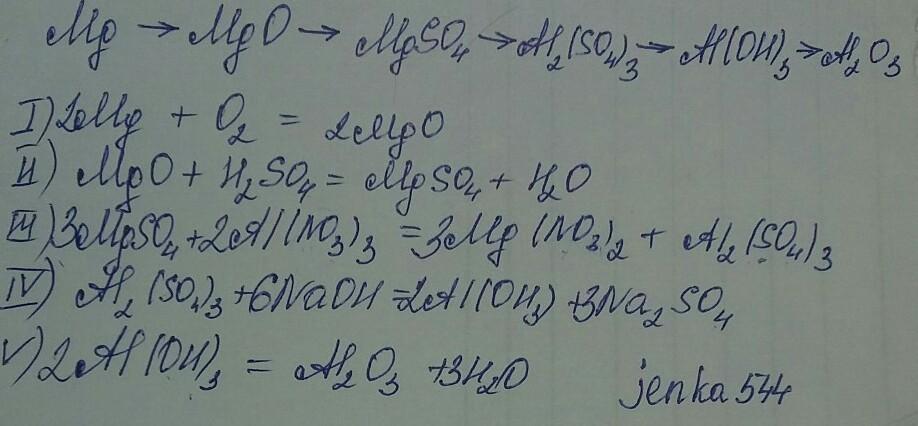 Mg → MgO → MgSO₄ → Al₂(SO₄)₃ → Al(OH)₃ → Al₂O₃
I) 2Mg + O₂ = 2MgO
II) MgO + H₂SO₄ = MgSO₄ + H₂O
III) 3MgSO₄ + 2Al(NO₃)₃ = 3Mg(NO₃)₂ + Al₂(SO₄)₃
IV) Al₂(SO₄)₃ + 6NaOH = 2Al(OH₃) + 3Na₂SO₄
V) 2Al(OH)₃ = Al₂O₃ + 3H₂O
jenka 544